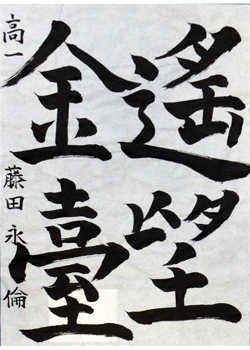 遙望
金臺
高一 藤田永倫